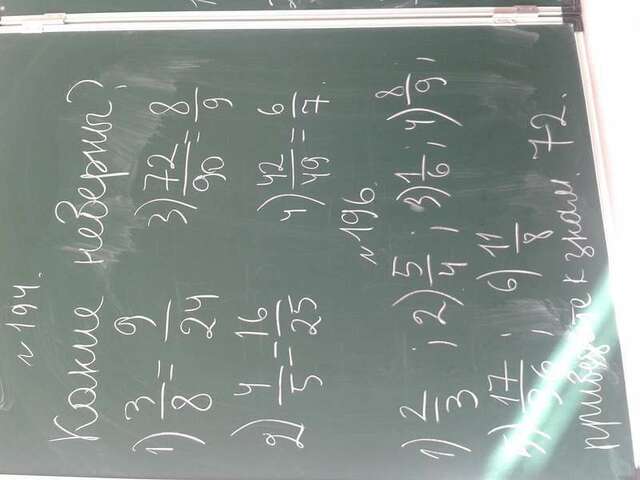 №194.
Какие неверны?
1) 3/8 = 9/24 3) 72/90 = 8/9
2) 4/5 = 16/25 4) 42/49 = 6/7
№196.
1) 2/3; 2) 5/4; 3) 1/6; 4) 8/9;
5) 17/36; 6) 11/8
приведите к знам. 72.